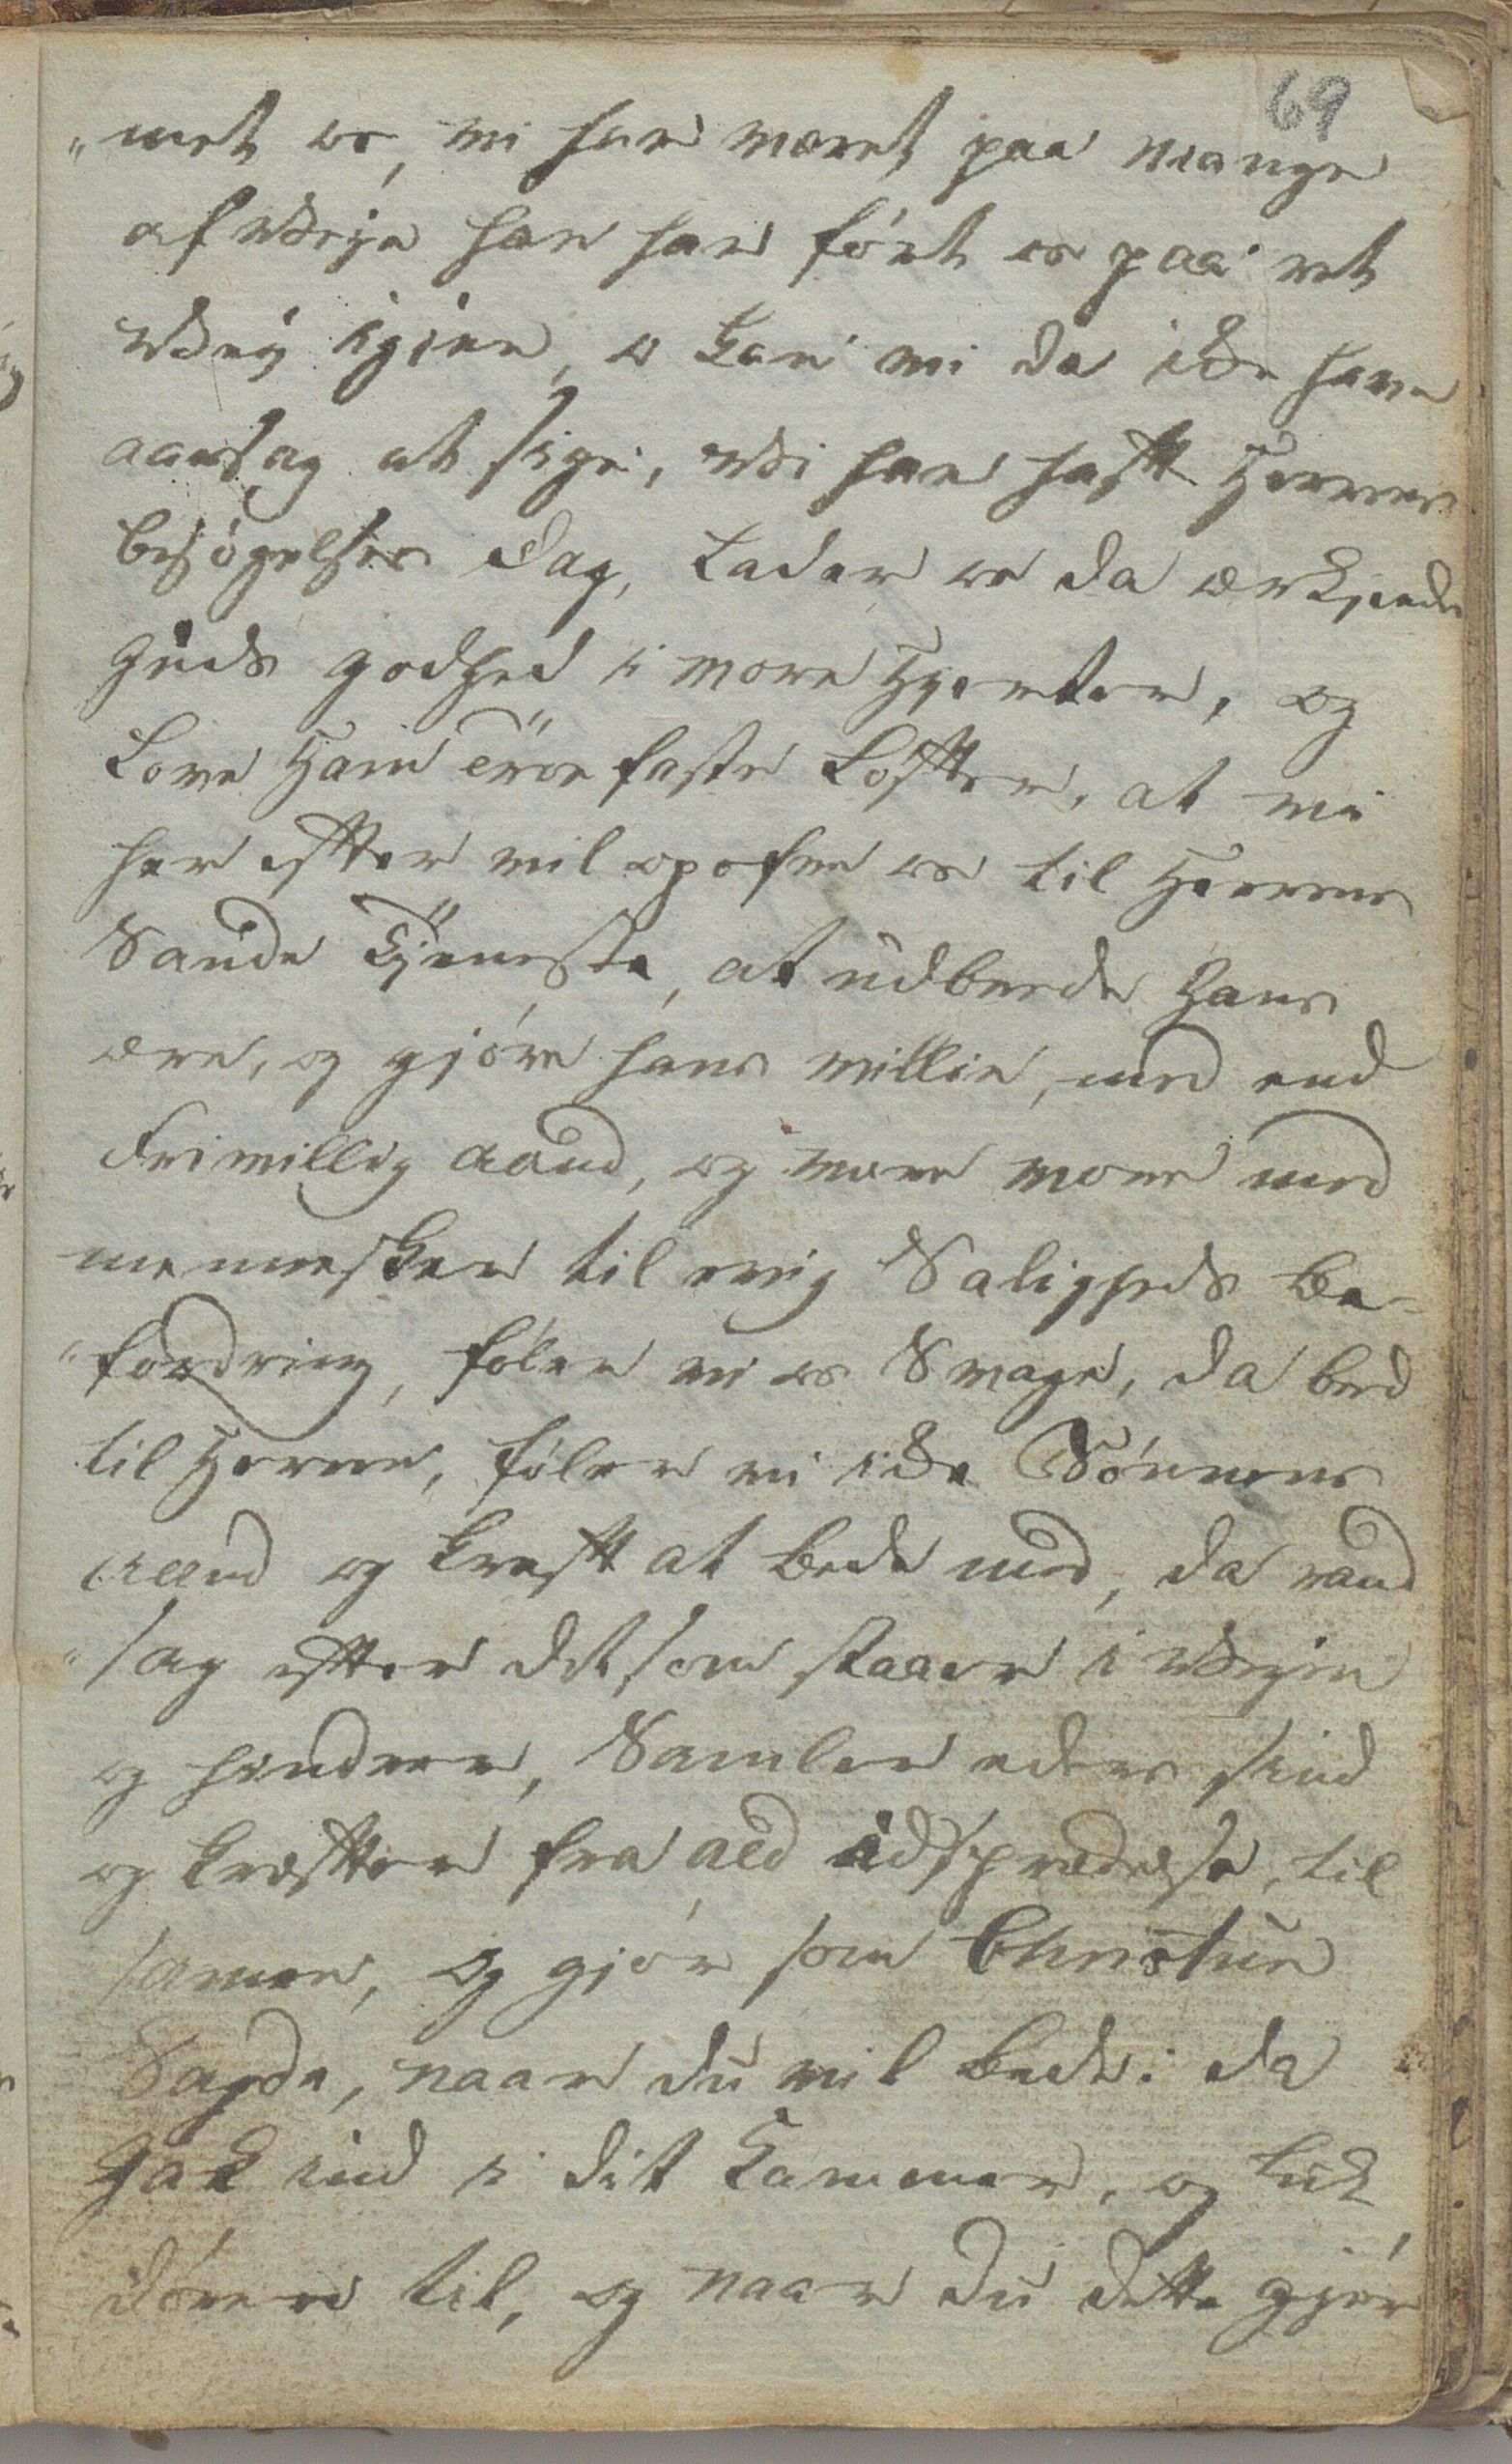 69
"met os, vi har været paa mange
afVeije han har ført os paa ret
Vej igjen, o kan vi da ikke have
aarsag at sige, Vi har haft Herrens
besøgelses Dag, Lader os da erkjende
Guds godhed i vore Hjerter, og
Love Ham Troefaste Løfter, at vi
her efter vil opofre os til Herrens
Sande Tjeneste, at udbrede Hans
ære, og gjøre hans villie, med end
frivillig aand, og være vore med
mennesker til evig Saligheds be-
"fordring, føler vi os Svage, da bed
til Herren, føler vi ikke Bønnens
aand og kraft at bede med, da rand
"sag efter det som staaer i Veijen
og hindrer, Samler eders sind
og kræfter fra ald adspredelse, til
samen, og gjør som Christus
Sagde, naar du vil bede: da
Gak ind i dit Kammer, og luk
døren til, og naar du dette gjør